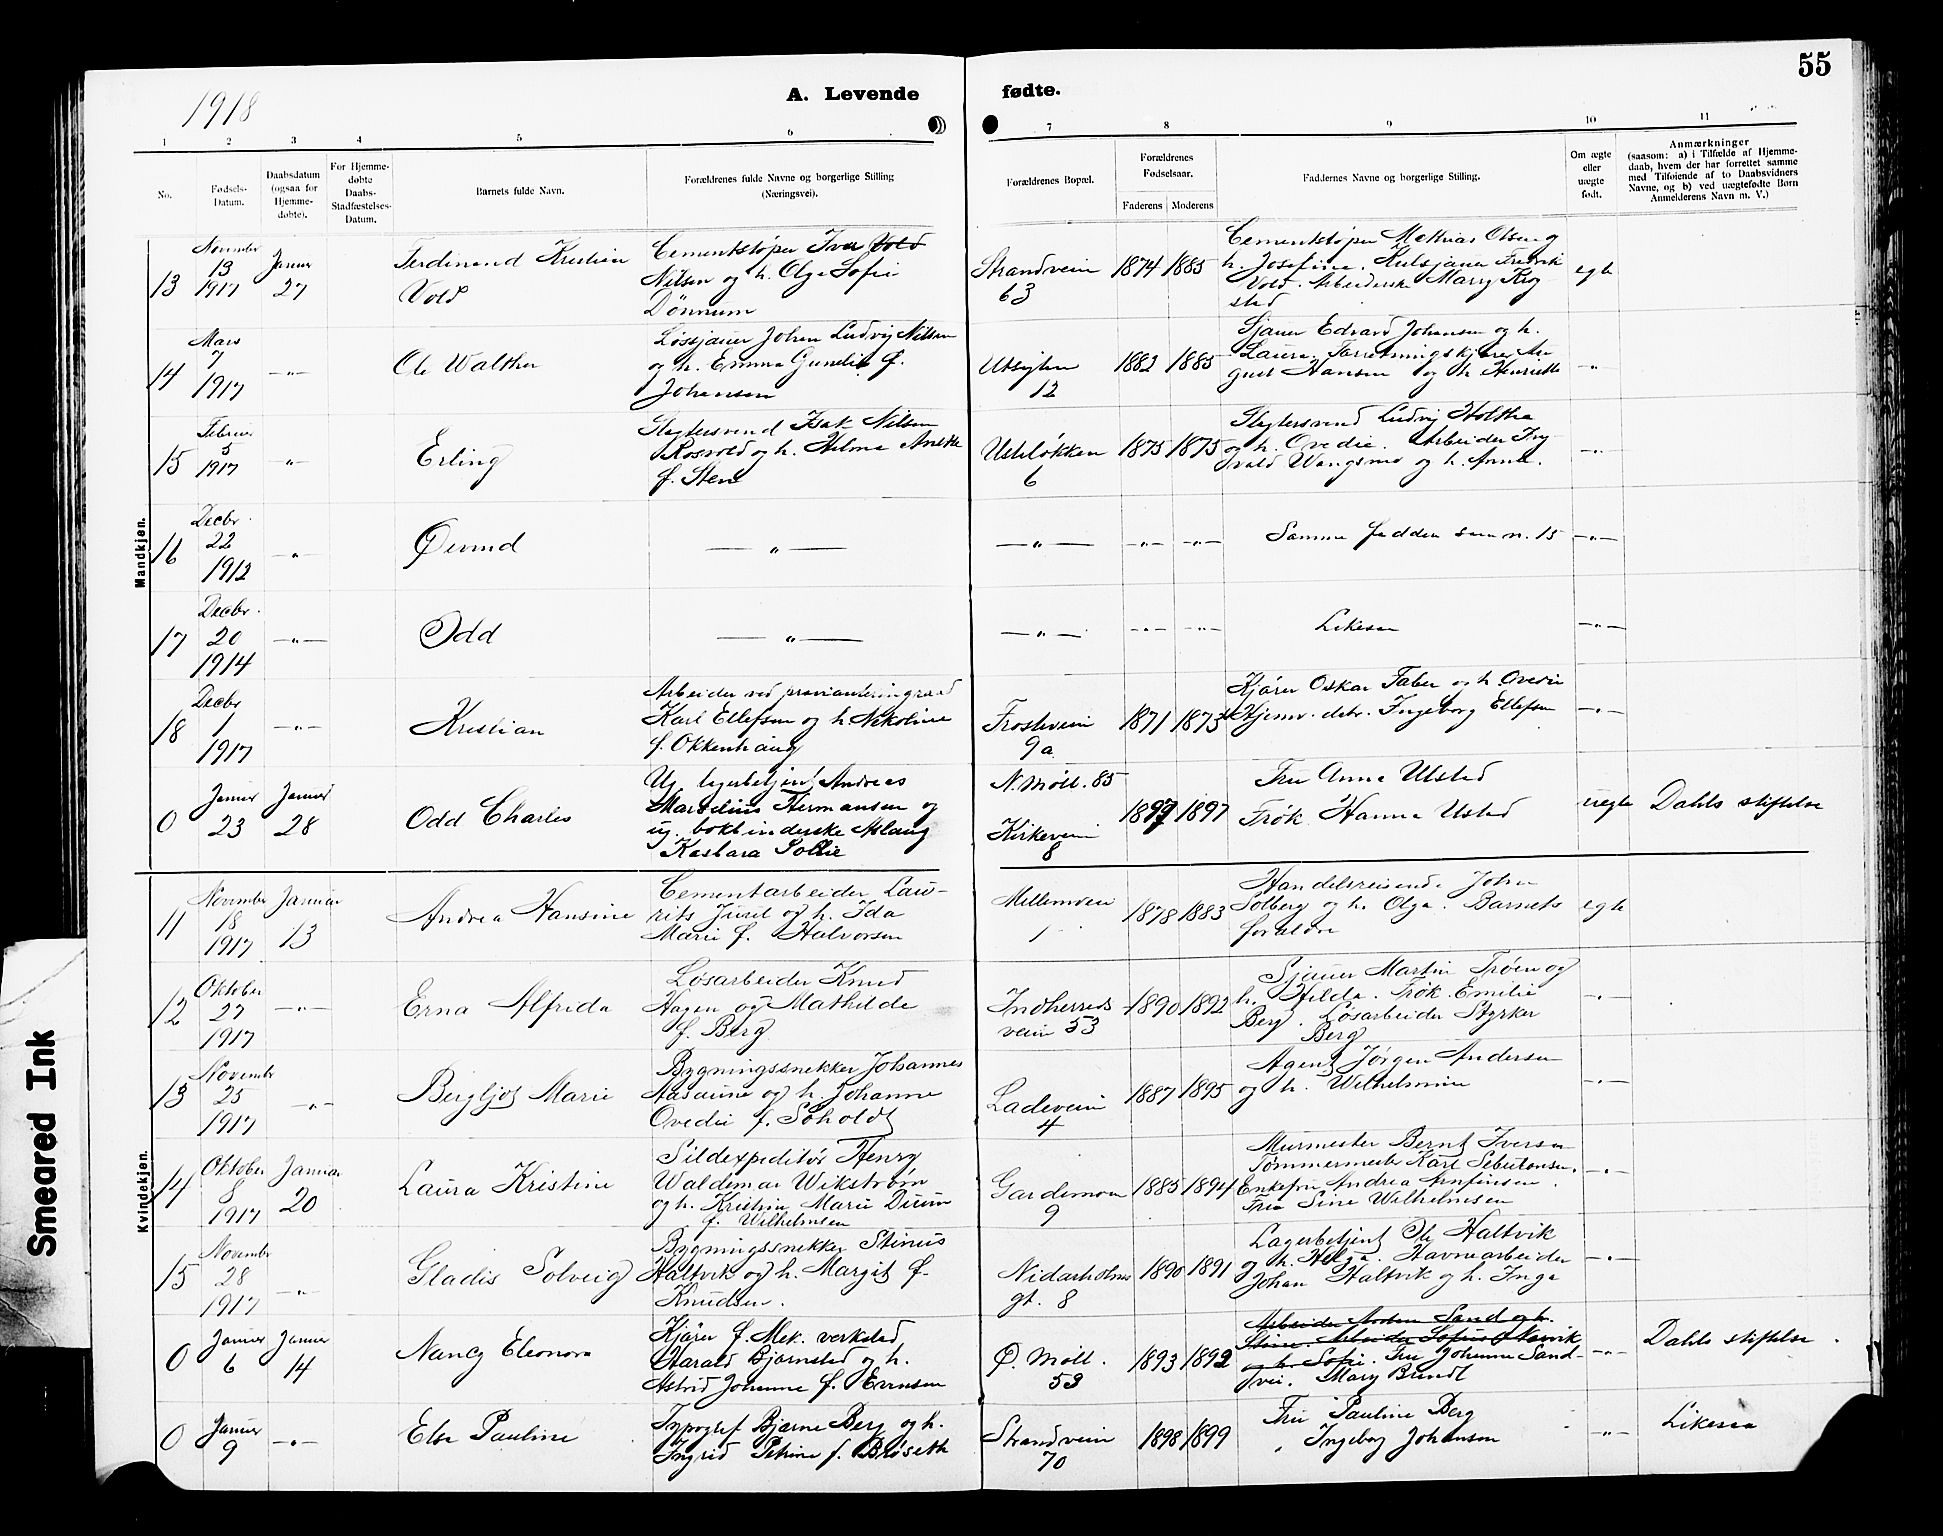 55
1918
A. Levende fødte.
1 2 3 4 5 6 7 8 9 10 11
No.
Fødsels-
Datum.
Daabsdatum
(ogsaa for
Hjemme-
døbte).
For Hjemme-
døbte
Daabs-
Stadfæstelses-
Datum.
Barnets fulde Navn.
Forældrenes fulde Navne og borgerlige Stilling
(Næringsvei).
Forældrenes Bopæl.
Forældrenes
Fødselsaar.
Faderens Moderens
Faddernes Navne og borgerlige Stilling.
Om ægte
eller
uægte
født.
Anmærkninger
(saasom: a) i Tilfælde af Hjemme-
daab, hvem der har forrettet samme
med Tilføiende af to Daabsvidners
Navne, og b) ved uægtefødte Børn
Anmelderens Navn m. V.)
Mandkjøn.
13
November
13
1917
Januar
27
Ferdinand Kristian
Vold
Cementstøper Iver Vold
Nilsen og h. Olga Sofie
Dønnum
Strandveien
63
1874 1885
Cementstøper Mathias Olsen og
h. Josefine. Fredrik
Vold. Arbeiderske Marry
egte
14
Mars
7
1917
—„—
Ole Walther
Løssjauer Johan Ludvig Nilsen
og h. Emma f.
Johansen
Utsigten
12
1882 1885
Sjauer Edvard Johansen og h.
Laura. Au-
gust Hansen og h. Henriette
—„—
15
Februar
5
1917
—„—
Erling
Slagtersvend Isak Nilsen
Rosvold og h. Hilma Anette
f. Sten
Ulsløkken
6
1875 1875
Slagtersvend Ludvig Holthe
og h. Ovedie. Arbeider
og h. Anna.
—„—
16
Decbr.
22
1912
—„—
Øivind
—„—
—„— —„— —„—
Samme faddere som n. 15
—„—
17
Decbr.
20
1914
—„—
Odd
—„—
—„— —„— —„—
Likesaa
—„—
18
Decbr
1
1917
—„—
Kristian
Arbeider ved provianteringsraad
Karl Ellefsen og h. Nikoline
f. Okkenhaug
Frostaveien
9a
1871 1873
Kjører Oskar Faber og h. Ovedie
Hjemv. dtr. Ingeborg Ellefsen
—„—
0
Januar
23
Januar
28
Odd Charles
Ug. lagerbetjent Andreas
Marselius Hermansen og
ug. bokbinderske Aslaug
Kasbara Sollie
N. Møll. 85
Kirkeveien
8
1897 1897
Fru Anna Ulsted
Frøk. Hanna Ulsted
uegte
Dahls stiftelse
Kvindekjøn.
11
November
18
1917
Januar
13
Andrea Hansine
Cementarbeider Lau-
rits Juul og h. Ida
Marie f. Halvorsen
Mellemveien
1
1878 1883
Handelsreisende Johan
Solberg og h. Olga. Barnets
forældre
egte
12
Oktober
27
1917
—„—
Erna Alfrida
Løsarbeider Knud
Hagen og Mathilde
f. Berg
Indherreds
veien 53
1890 1892
Sjauer Martin Trøen og
h. Hilda. Frøk. Emilie
Berg. Løsarbeider Styrker
Berg
—„—
13
November
25
1917
—„—
Bergljot Marie
Bygningssnekker Johannes
Aasaune og h. Johanne
Ovedie f. Soholdt
Ladeveien
4
1887 1895
Agent Jørgen Andersen
og h. Wilhelmine
—„—
14
Oktober
8
1917
Januar
20
Laura Kristine
Sildexpeditør Henry
Waldemar Wikstrøm
og h. Kristine Marie
f. Wilhelmsen
Gardemoen
9
1885 1894
Murmester Bernt Iversen
Tømmermester Karl
Enkefru Andrea Arnfinsen.
Fru Sine Wilhelmsen
—„—
15
November
28
1917
—„—
Gladis Solveig
Bygningssnekker Stinus
Haltvik og h. Margit f.
Knudsen.
Nidarholms
gt. 8
1890 1891
Lagerbetjent Ole Haltvik
og h. Helga. Havnearbeider
Johan Haltvik og h. Inga
—„—
0
Januar
6
Januar
14
Nancy Eleonora
Kjører f. Mek. verksted
Harald Bjørnsted og h.
Astrid Johanne f. Evensen
Ø. Møll.
53
1893 1892
Arbeider Anton Sand og h.
Stine. Arbeider Sofus
og h. Sofie. Fru Johanne Sand-
vei. Mary Brendt
—„—
Dahls stiftelse.
0
Januar
9
—„—
Else Pauline
Typograf Bjarne Berg og h.
Ingrid Petrine f. Brøseth
Strandveien
70
1898 1899
Fru Pauline Berg
„ Ingeborg Johansen
—„—
Likesaa
Smeared Ink